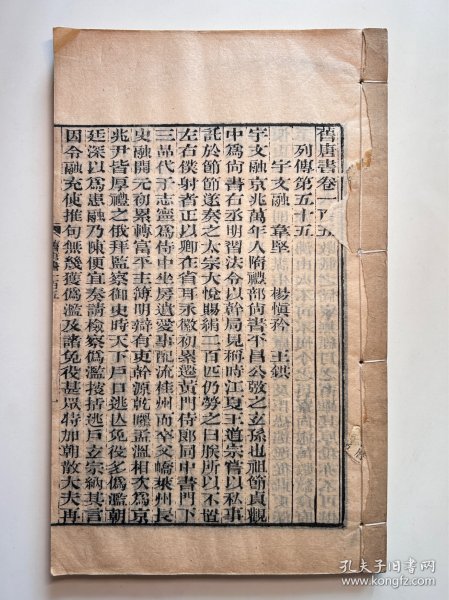 舊唐書卷一百五
列傳第五十五
宇文融 韋堅
楊慎矜 王鉷
宇文融京兆萬年人隋禮部尚書平昌公弼之玄孫也祖節貞觀
中爲尚書右丞明習法令以幹局見稱時江夏王道宗嘗以私事
託於節節遂奏之太宗大悅賜絹二百匹仍勞之曰朕所以不置
左右僕射者正以卿在省耳永徽初累遷黃門侍郎同中書門下
三品代于志寧爲侍中坐房遺愛事配流桂州而卒父嶠萊州長
史融開元初累轉富平主簿明辯有吏幹源乾曜孟溫相次爲京
兆尹皆厚禮之俄拜監察御史時天下戶口逃亡免役多僞濫朝
廷深以爲患融乃陳便宜奏請檢察僞濫搜括逃戶玄宗納其言
因令融充使推句無幾獲僞濫及諸免役甚衆特加朝散大夫再
孔夫子旧书网
www.kongfz.com